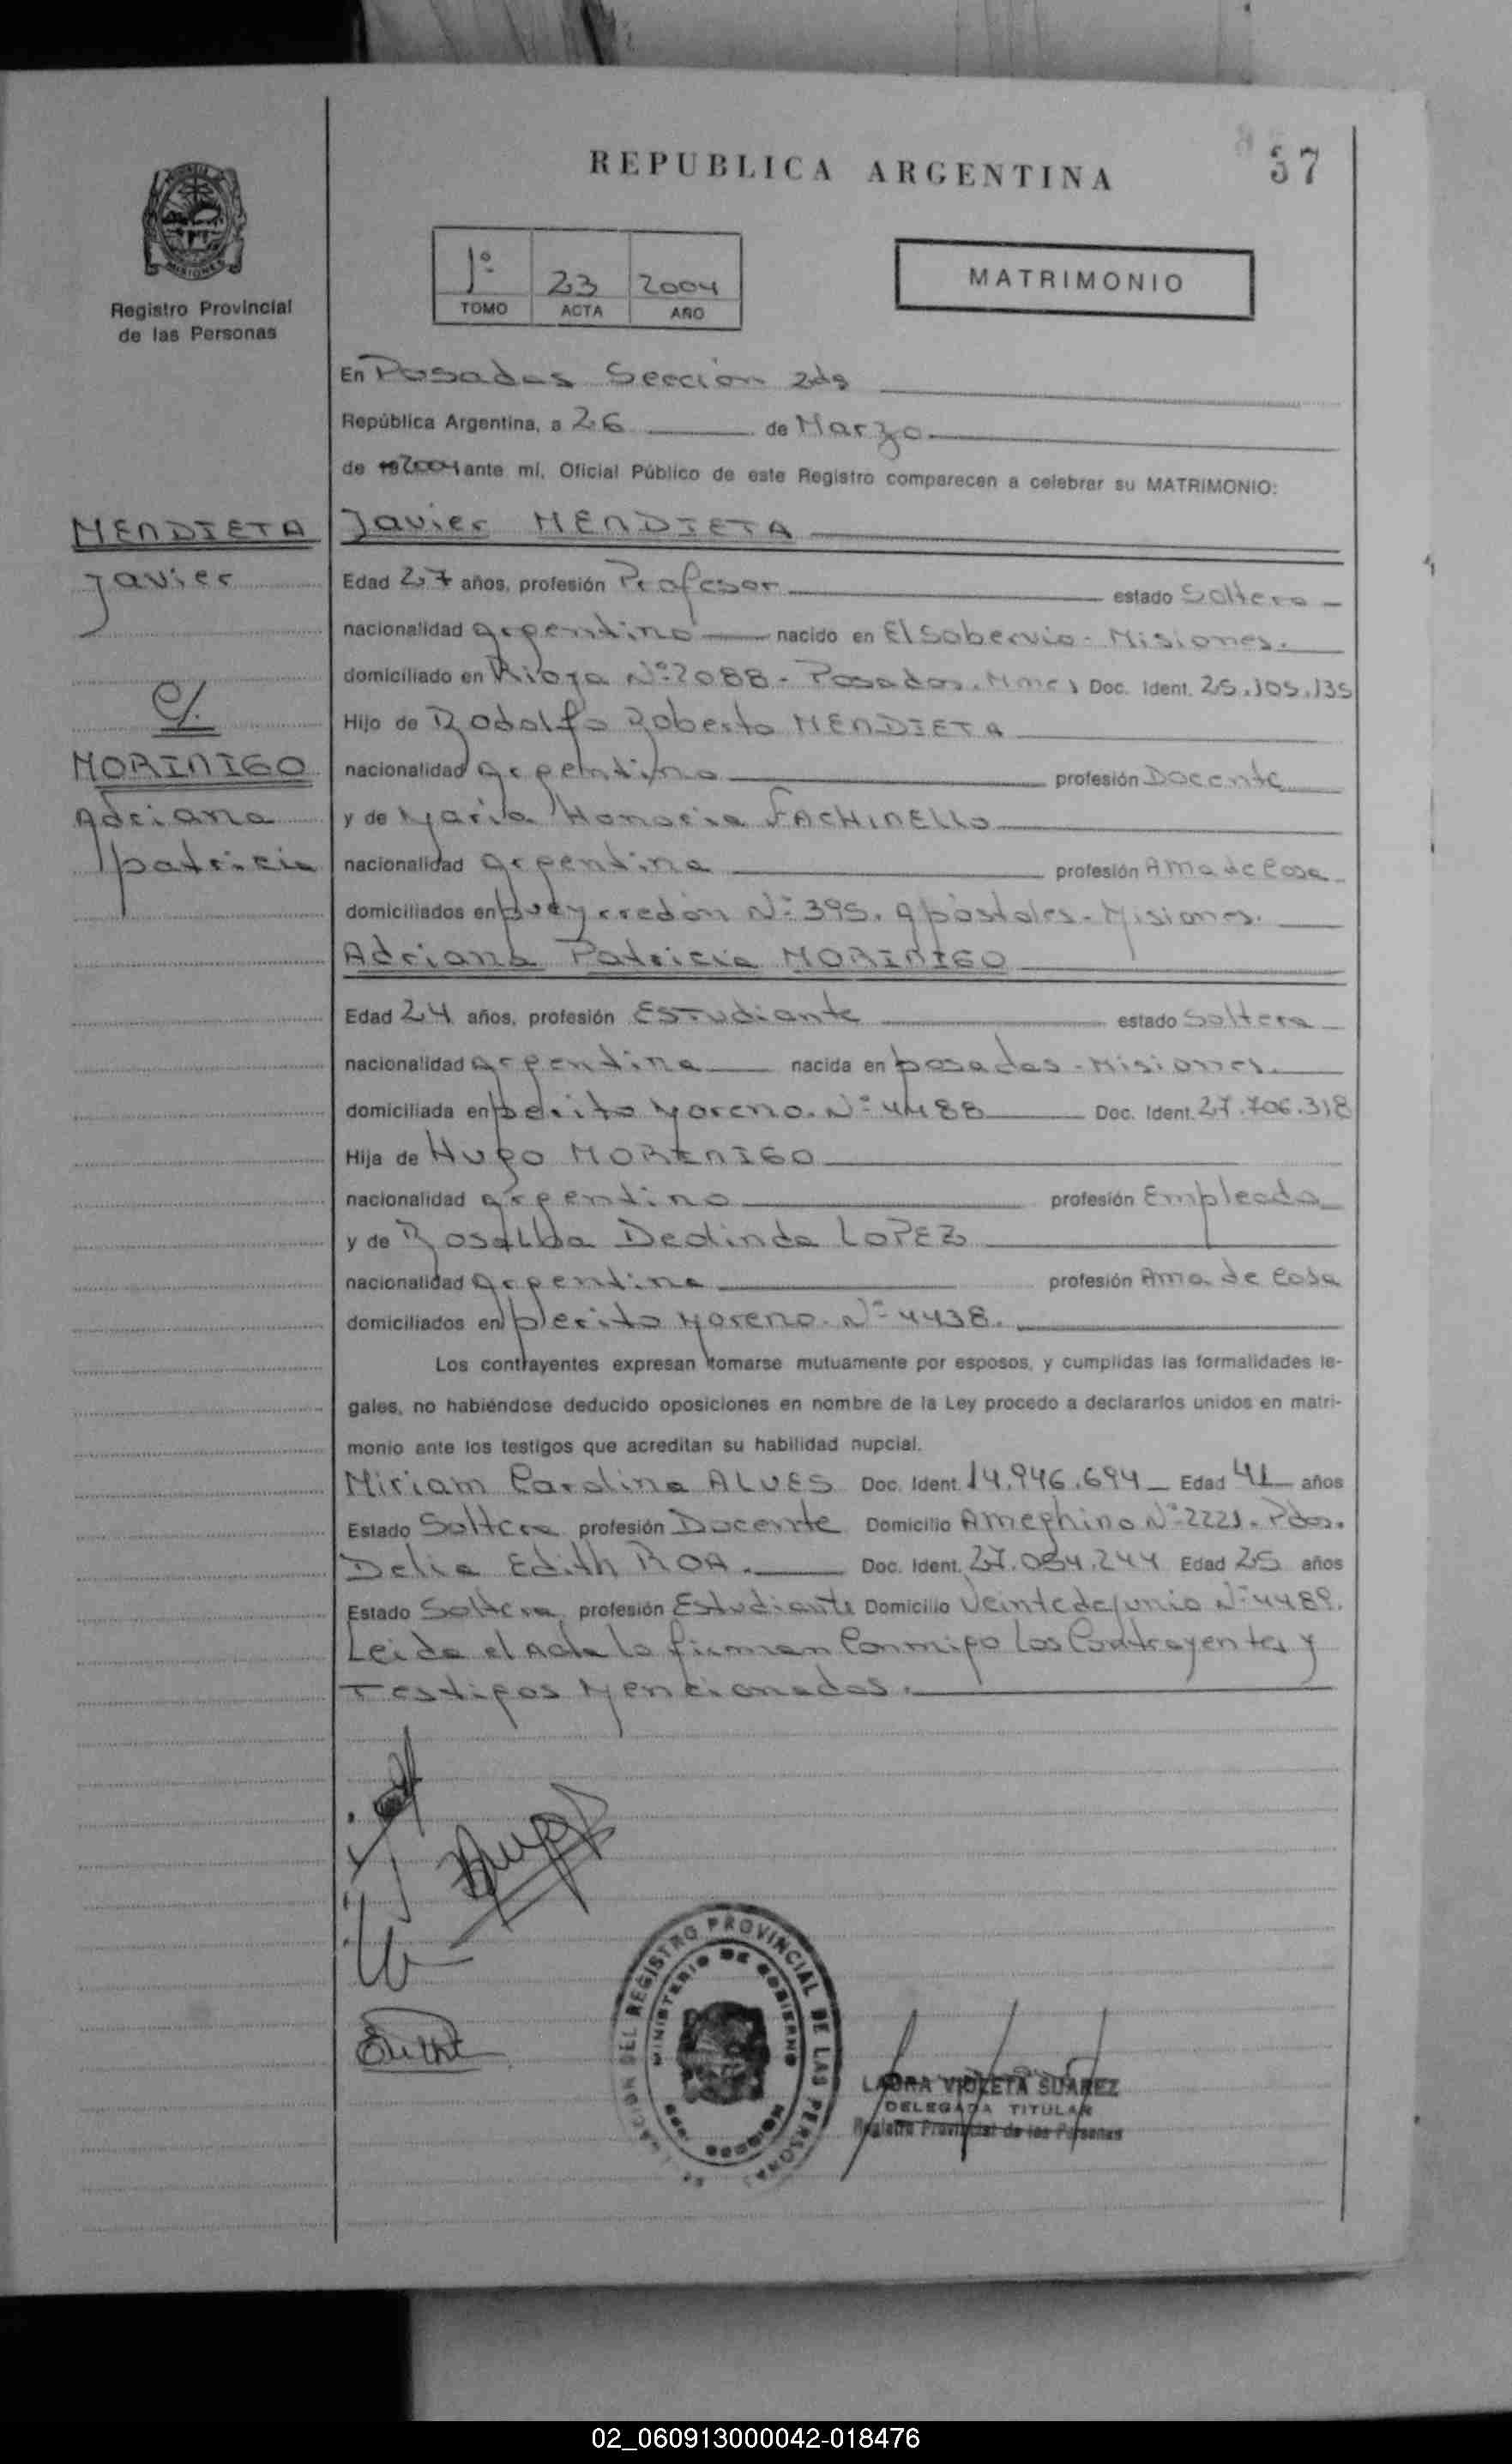 REPUBLICA ARGENTINA
37
MISIONES
Registro Provincial
de las Personas
1º 23 2004
TOMO ACTA AÑO
MATRIMONIO
En Posadas Sección 2da
República Argentina, a 26 de Marzo
de 19 2004 ante mí, Oficial Público de este Registro comparecen a celebrar su MATRIMONIO:
MENDIETA
Javier
c/.
MORINIGO
Adriana
patricia
Javier MENDIETA
Edad 27 años, profesión Profesor estado Soltero
nacionalidad argentino nacido en El Sobervio - Misiones.
domiciliado en Rioja Nº 2088 - Posadas. Mnes Doc. Ident. 25.105.135
Hijo de Rodolfo Roberto MENDIETA
nacionalidad argentino profesión Docente
y de María Honoria FACHINELLO
nacionalidad argentina profesión Ama de Casa
domiciliados en pueyrredón Nº 395. apóstoles - Misiones.
Adriana Patricia MORINIGO
Edad 24 años, profesión Estudiante estado Soltera
nacionalidad argentina nacida en posadas - Misiones.
domiciliada en perito Moreno. Nº 4488 Doc. Ident. 27.706.318
Hija de Hugo MORINIGO
nacionalidad argentino profesión Empleado
y de Rosalba Deolinda LOPEZ
nacionalidad argentina profesión Ama de Casa
domiciliados en perito Moreno. Nº 4438.
Los contrayentes expresan tomarse mutuamente por esposos, y cumplidas las formalidades le-
gales, no habiéndose deducido oposiciones en nombre de la Ley procedo a declararlos unidos en matri-
monio ante los testigos que acreditan su habilidad nupcial.
Miriam Carolina ALVES Doc. Ident. 14.946.694 Edad 41 años
Estado Soltera profesión Docente Domicilio Ameghino Nº 2221. Pdas.
Delia Edith ROA. Doc. Ident. 27.084.244 Edad 25 años
Estado Soltera profesión Estudiante Domicilio Veinte de junio Nº 4489.
Leida el Acta la firman Conmigo los Contrayentes y
Testigos Mencionados.
DEL REGISTRO PROVINCIAL DE LAS PERSONAS
MINISTERIO DE GOBIERNO
LAURA VIOLETA SUAREZ
DELEGADA TITULAR
Registro Provincial de las Personas
02_060913000042-018476